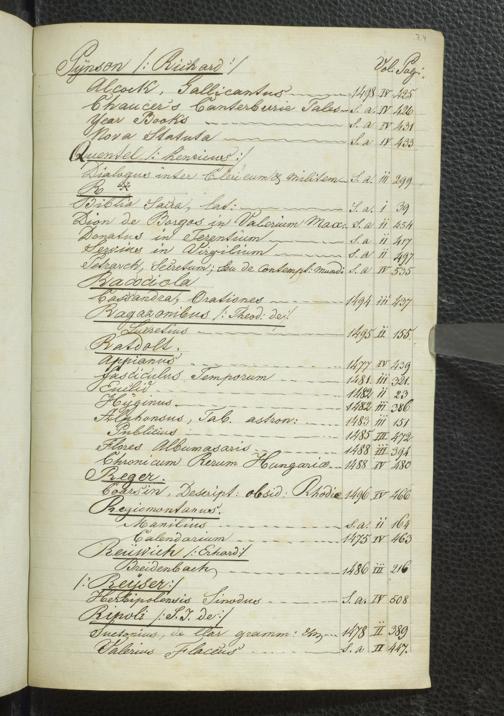 24
Pÿnson /: Richard :/ Vol: Pag:
Alcock, Gallicantus 1498 IV 425
Chaucer's Canterburie Tales S. a. IV 426
Year Books S. a IV 431
Nova Statuta S. a IV 433
Quentel /: henricus :/
Dialogus inter Clericum & militem S. a. iii 299
R
Biblia Sacra, lat: S. a. i 39
Dion de Borgos in Valerium Max: S. a ii 454
Donatus in Terentium S. a ii 417
Servius in Virgilium S. a ii 497
Petrarch, Secretum; Seu de Contempt: Mundi S. a IV 535
Bacodola
Cassandrea, Orationes 1494 iii 437
Ragazonibus /: Theod: de :/
Lucretius 1495 ii 155
Ratdolt.
Appianus 1477 IV 439
Fasciculus Temporum 1481 iii 321
Euclid 1482 ii 23
Hÿginus 1482 iii 386
Alphonsus, Tab. astron: 1483 iii 151
Publicius 1485 III 472
Flores Albumasaris 1488 iii 394
Chronicum Rerum Hungariæ 1488 IV 480
Reger.
Coarsin, Descript: obsid: Rhodiæ 1496 IV 466
Regiomontanus.
Manilius S. a. ii 164
Calendarium 1475 IV 463
Reüwich /: Erhard :/
Breidenbach 1486 iii 216
/: Reÿser :/
Herbipolensis Sinodus S. a. IV 508
Ripoli /: S. J. de :/
Suetonius, de Clar gramm: 1478 ii 389
Valerius Flaccus S. a II 447.